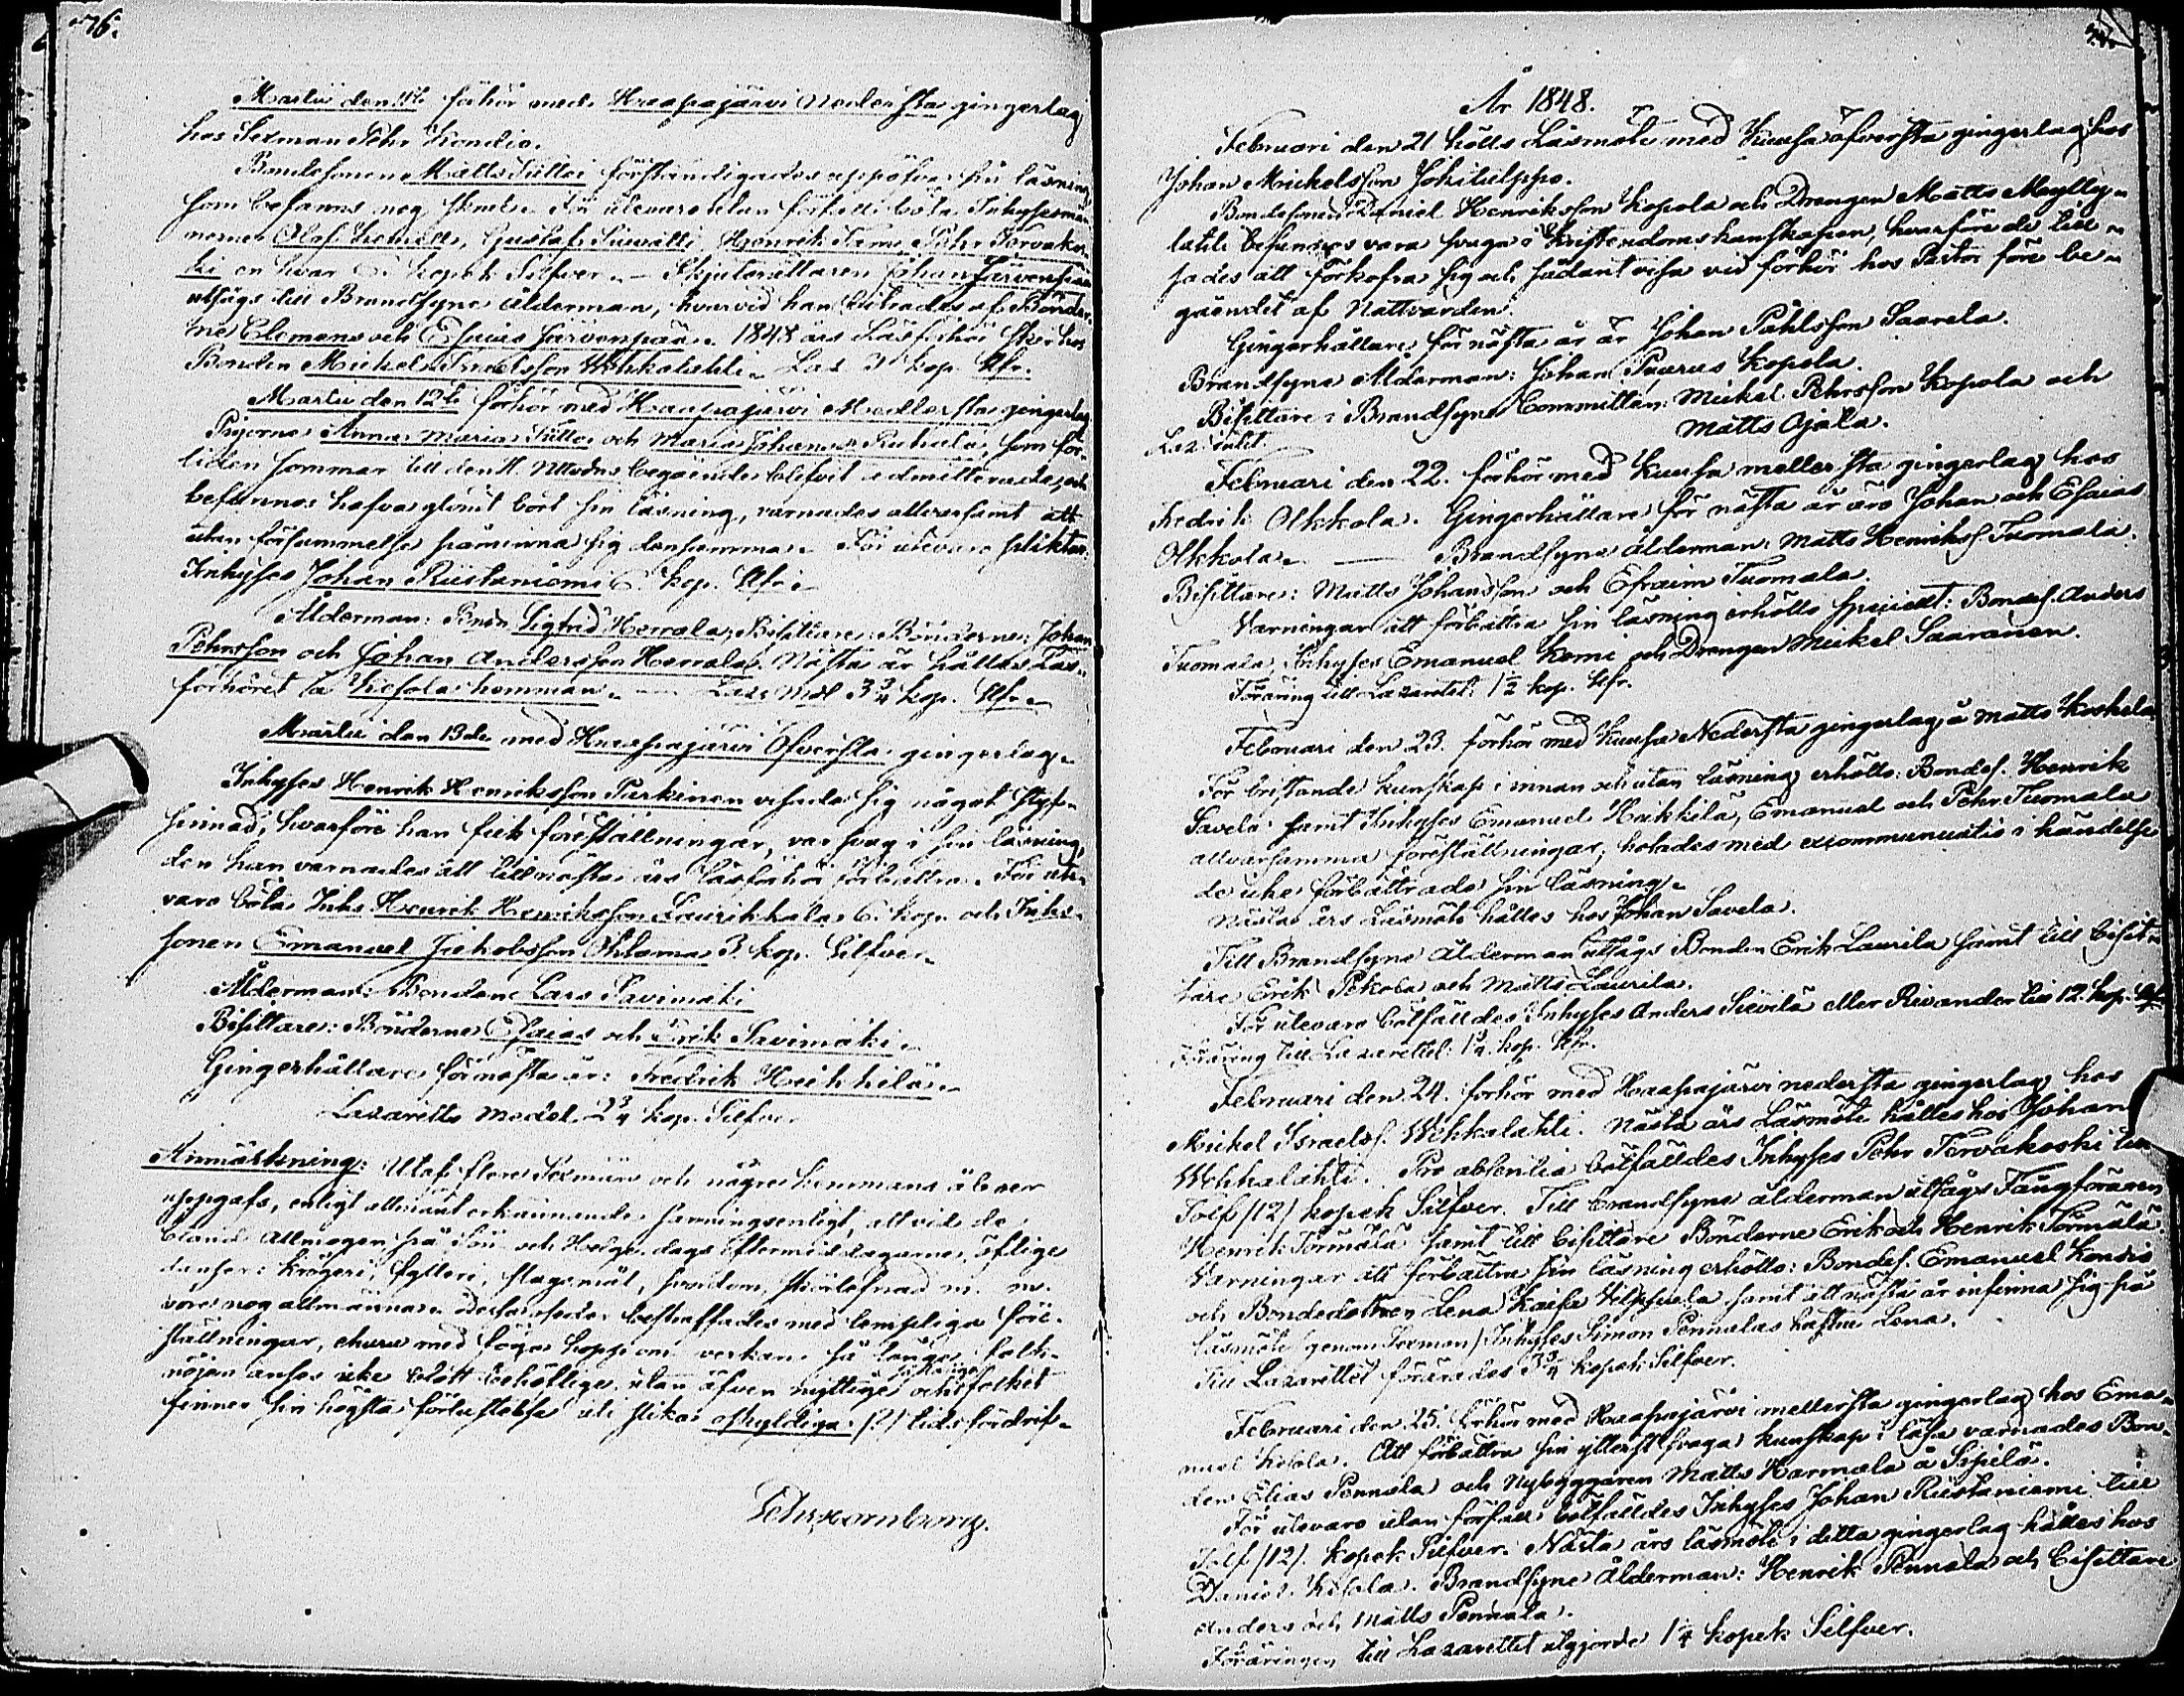 76.
Martii den 11te förhör med Haapajärvi Nedersta gingerlag
hos Sexman Pehr Kondio.
Bondesonen Matts Tuttoi förständigades uppöfva sin läsning
som befanns nog skral. För utevaro utan förfall böta Inhysesmän-
nerne Olof Kemilä, Gustaf Siivälli, Henrik Kemi, Pehr Tervakos-
ki en hvar 6 kopek Silfver. — Skjutsrättaren Johan Järvenpää
utsågs till Brandsyne ålderman, hvarvid han biträdes af Bönder-
ne Clemens och Esaias Järvenpää. 1848 års Läsförhör sker hos
Bonden Mickel Israelsson Wehkalahti. Laz. 3 kop. Slfr.
Martii den 12te förhör med Haapajärvi Medlersta gingerlag
Pigorna Anna Maria Tutto och Maria Johanna Ruhala, som för-
liden sommar till den H. Nttvdns begående blifvit admitterade, och
befunnos hafva glömt bort sin läsning, varnades allvarsamt att
utan försummelse påminna sig densamma. För utevaro pliktar
Inhyses Johan Riistaniemi 6 kop. Slfr.
Ålderman: Bondn Sigfrid Herrala, Bisittare: Bönderne: Johan
Pehrsson och Johan Andersson Herrala. Nästa år hålles Läs-
förhöret å Kesola hemman. — Laz: Mdl 3¾ kop. Slfr.
Martii den 13de med Haapajärvi Öfversta gingerlag.
Inhyses Henrik Henriksson Parkinen visade sig något styf-
sinnad, hvarföre han fick föreställningar, var svag i sin läsning,
den han varnades att till nästa års läsförhör förbättra. För ute-
varo böta Inhs Henrik Henriksson Laurikkala 6 kop. och Inhs-
sonen Emanuel Jakobsson Ohtama 3 kop. Silfver.
Ålderman: Bonden Lars Savimäki
Bisittare: Bönderne Esaias och Erik Savimäki.
Gingerhållare för nästa år: Fredrik Heikkilä.
Lazaretts medel 2¾ kop. Silfver.
Anmärkning: Utaf flere Sexmän och någre hemmans äboer
uppgafs, enligt allmänt erkännande sanningsenligt, att vid de
bland Allmogen på Sön- och Helgedags eftermiddagarna öflige
danser: krögeri, fylleri, slagsmål, svordom, skörlefnad m. m.
vore nog allmänna. Dessa oseder bestraffades med lämpliga före-
ställningar, ehuru med föga hopp om verkan så länge folk-
nöjen anses icke blott behöflige utan äfven nyttige och folket
finner sin högsta förlustelse uti slika oskyldiga (?) tidsfördrif.
År 1848.
Februari den 21 hölls Läsmöte med Kuusa öfversta gingerlag hos
Johan Mickelsson Jokitulppo.
Bondesonen Daniel Henriksson Kopola och Drengen Matts Mylly-
lahti befunnos vara svaga i Kristendomskunskapen, hvarföre de till-
sades att förkofra sig och sådant visa vid förhör hos Pastor före be-
gåendet af Nattvarden.
Gingerhållare för nästa år är Johan Påhlsson Saarela.
Brandsyne Ålderman: Johan Puurus Kopola.
Bisittare i Brandsyne Committén: Mickel Pehrsson Kopola och
Matts Ojala.
Laz: intet.
Februari den 22. förhör med Kuusa mellersta gingerlag hos
Fredrik Olkkola. Gingerhållare för nästa år äro Johan och Esaias
Olkkola. — Brandsyne ålderman: Matts Henrikss. Tuomala.
Bisittare: Matts Johansson och Efraim Tuomala.
Varningar att förbättra sin läsning erhöllo speciellt: Bondes. Anders
Tuomala, Inhyses Emanuel Kemi och Drengen Mickel Saaranen.
Föräring till Lazarettet: 1½ kop. Slfr.
Februari den 23. förhör med Kuusa Nedersta gingerlag å Matts Koskela
För bristande kunskap i innan och utan läsning erhöllo: Bondes. Henrik
Savela samt Inhyses Emanuel Heikkilä, Emanuel och Pehr Tuomala
allvarsamma föreställningar, hotades med excommunicatio i händelse
de icke förbättrade sin läsning.
Nästa års Läsmöte hålles hos Johan Savela.
Till Brandsyne Ålderman utsågs Bonden Erik Laurila samt till bisit-
tare Erik Pokola och Matts Laurila.
För utevaro bötfälldes Inhyses Anders Siivilä eller Rivander till 12. kop. Slf.
Föräring till Lazarettet: 1¼ kop. Slfr.
Februari den 24. förhör med Haapajärvi nedersta gingerlag hos
Mickel Israelss. Wehkalahti. Nästa års Läsmöte hålles hos Johan
Wehkalahti. Pro absentia bötfälldes Inhyses Pehr Tervakoski till
Tolf (12) kopek Silfver. Till brandsyne ålderman utsågs Fångföraren
Henrik Törmälä samt till bisittare Bönderne Erik och Henrik Törmälä.
Varningar att förbättra sin läsning erhöllo: Bondes. Emanuel Kondio
och Bondedottren Lena Kaisa Vilppula samt att nästa år infinna sig på
läsmöte genom Sexman, Inhyses Simon Pennalas hustru Lena.
Till Lazarettet förärades 3¾ kopek Silfver.
Februari den 25. förhör med Haapajärvi mellersta gingerlag hos Ema-
nuel Kesola. Att förbättra sin ytterst svaga kunskap i läsa varnades Bon-
den Elias Pennala och Nybyggaren Matts Harmala å Sipilä.
För utevaro utan förfall bötfälldes Inhyses Johan Riistaniemi till
Tolf (12). kopek Silfver. Nästa års läsmöte i detta gingerlag hålles hos
Daniel Kesola. Brandsyne Ålderman: Henrik Pennala och bisittare
Anders och Matts Pennala.
Föräringen till Lazarettet utgjorde 1¼ kopek Silfver.